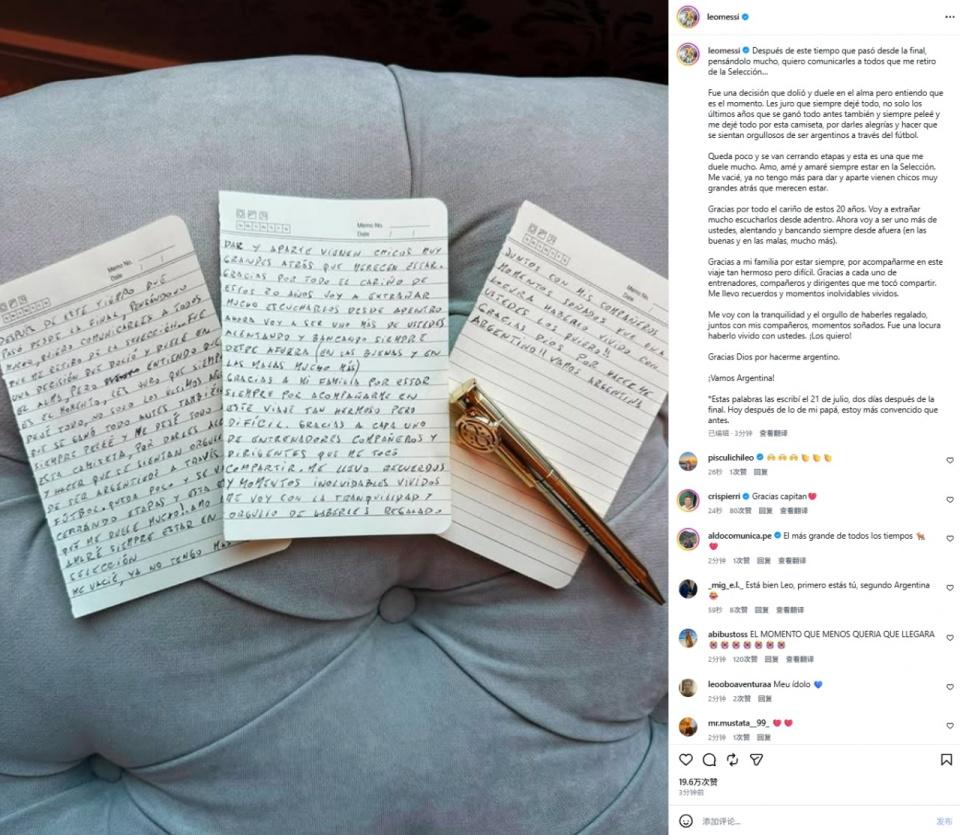 Memo No.
Date / /
DESPUES DE ESTE TIEMPO QUE
PASO DESDE LA FINAL, PENSANDOLO
MUCHO, QUIERO COMUNICARLES A TODOS
QUE ME RETIRO DE LA SELECCIÓN. FUE
UNA DECISIÓN QUE DOLIÓ Y DUELE EN
EL ALMA, PERO ENTIENDO QUE
ES EL MOMENTO. LES JURO QUE SIEMPRE
DEJÉ TODO, NO SOLO LOS ÚLTIMOS AÑOS
QUE SE GANÓ TODO ANTES TAMBIÉN
SIEMPRE PELEÉ Y ME DEJÉ TODO
ESTA CAMISETA, POR DARLES ALE
Y HACER QUE SE SIENTAN ORGULL
DE SER ARGENTINOS A TRAVÉS
FÚTBOL. QUEDA POCO Y SE V
CERRANDO ETAPAS Y ESTA E
QUE ME DUELE MUCHO. AMO,
AMARÉ SIEMPRE ESTAR EN
SELECCIÓN
ME VACIÉ, YA NO TENGO MÁS
Memo No.
Date / /
DAR Y APARTE VIENEN CHICOS MUY
GRANDES ATRÁS QUE MERECEN ESTAR.
GRACIAS POR TODO EL CARIÑO DE
ESTOS 20 AÑOS VOY A EXTRAÑAR
MUCHO ESCUCHARLOS DESDE ADENTRO
AHORA VOY A SER UNO MÁS DE USTEDES
ALENTANDO Y BANCANDO SIEMPRE
DESDE AFUERA (EN LAS BUENAS Y EN
LAS MALAS MUCHO MÁS)
GRACIAS A MI FAMILIA POR ESTAR
SIEMPRE POR ACOMPAÑARME EN
ESTE VIAJE TAN HERMOSO PERO
DIFÍCIL. GRACIAS A CADA UNO
DE ENTRENADORES COMPAÑEROS Y
DIRIGENTES QUE ME TOCÓ
COMPARTIR. ME LLEVO RECUERDOS
Y MOMENTOS INOLVIDABLES VIVIDOS
ME VOY CON LA TRANQUILIDAD Y
ORGULLO DE HABERLES REGALADO
Memo No.
Date / /
JUNTOS CON MIS COMPAÑEROS
MOMENTOS SOÑADOS FUE UNA
LOCURA HABERLO VIVIDO CON
USTEDES LOS QUIERO!!
GRACIAS DIOS POR HACERME
ARGENTINO!! VAMOS ARGENTINA
leomessi
leomessi Después de este tiempo que pasó desde la final,
pensándolo mucho, quiero comunicarles a todos que me retiro
de la Selección...
Fue una decisión que dolió y duele en el alma pero entiendo que
es el momento. Les juro que siempre dejé todo, no solo los
últimos años que se ganó todo antes también y siempre peleé y
me dejé todo por esta camiseta, por darles alegrías y hacer que
se sientan orgullosos de ser argentinos a través del fútbol.
Queda poco y se van cerrando etapas y esta es una que me
duele mucho. Amo, amé y amaré siempre estar en la Selección.
Me vacié, ya no tengo más para dar y aparte vienen chicos muy
grandes atrás que merecen estar.
Gracias por todo el cariño de estos 20 años. Voy a extrañar
mucho escucharlos desde adentro. Ahora voy a ser uno más de
ustedes, alentando y bancando siempre desde afuera (en las
buenas y en las malas, mucho más).
Gracias a mi familia por estar siempre, por acompañarme en este
viaje tan hermoso pero difícil. Gracias a cada uno de
entrenadores, compañeros y dirigentes que me tocó compartir.
Me llevo recuerdos y momentos inolvidables vividos.
Me voy con la tranquilidad y el orgullo de haberles regalado,
juntos con mis compañeros, momentos soñados. Fue una locura
haberlo vivido con ustedes. ¡Los quiero!
Gracias Dios por hacerme argentino.
¡Vamos Argentina!
*Estas palabras las escribí el 21 de julio, dos días después de la
final. Hoy después de lo de mi papá, estoy más convencido que
antes.
已编辑 · 3分钟 查看翻译
pisculichileo
26秒 1次赞 回复
crispierri Gracias capitan❤️
24秒 80次赞 回复 查看翻译
aldocomunica.pe El más grande de todos los tiempos 🐐
❤️
2分钟 1次赞 回复 查看翻译
_mig_e.l._ Está bien Leo, primero estás tú, segundo Argentina
59秒 8次赞 回复 查看翻译
abibustoss EL MOMENTO QUE MENOS QUERIA QUE LLEGARA
2分钟 120次赞 回复 查看翻译
leooboaventuraa Meu ídolo 💙
2分钟 2次赞 回复
mr.mustata__99_ ❤️❤️
2分钟 1次赞 回复
19.6万次赞
3分钟前
添加评论...
发布